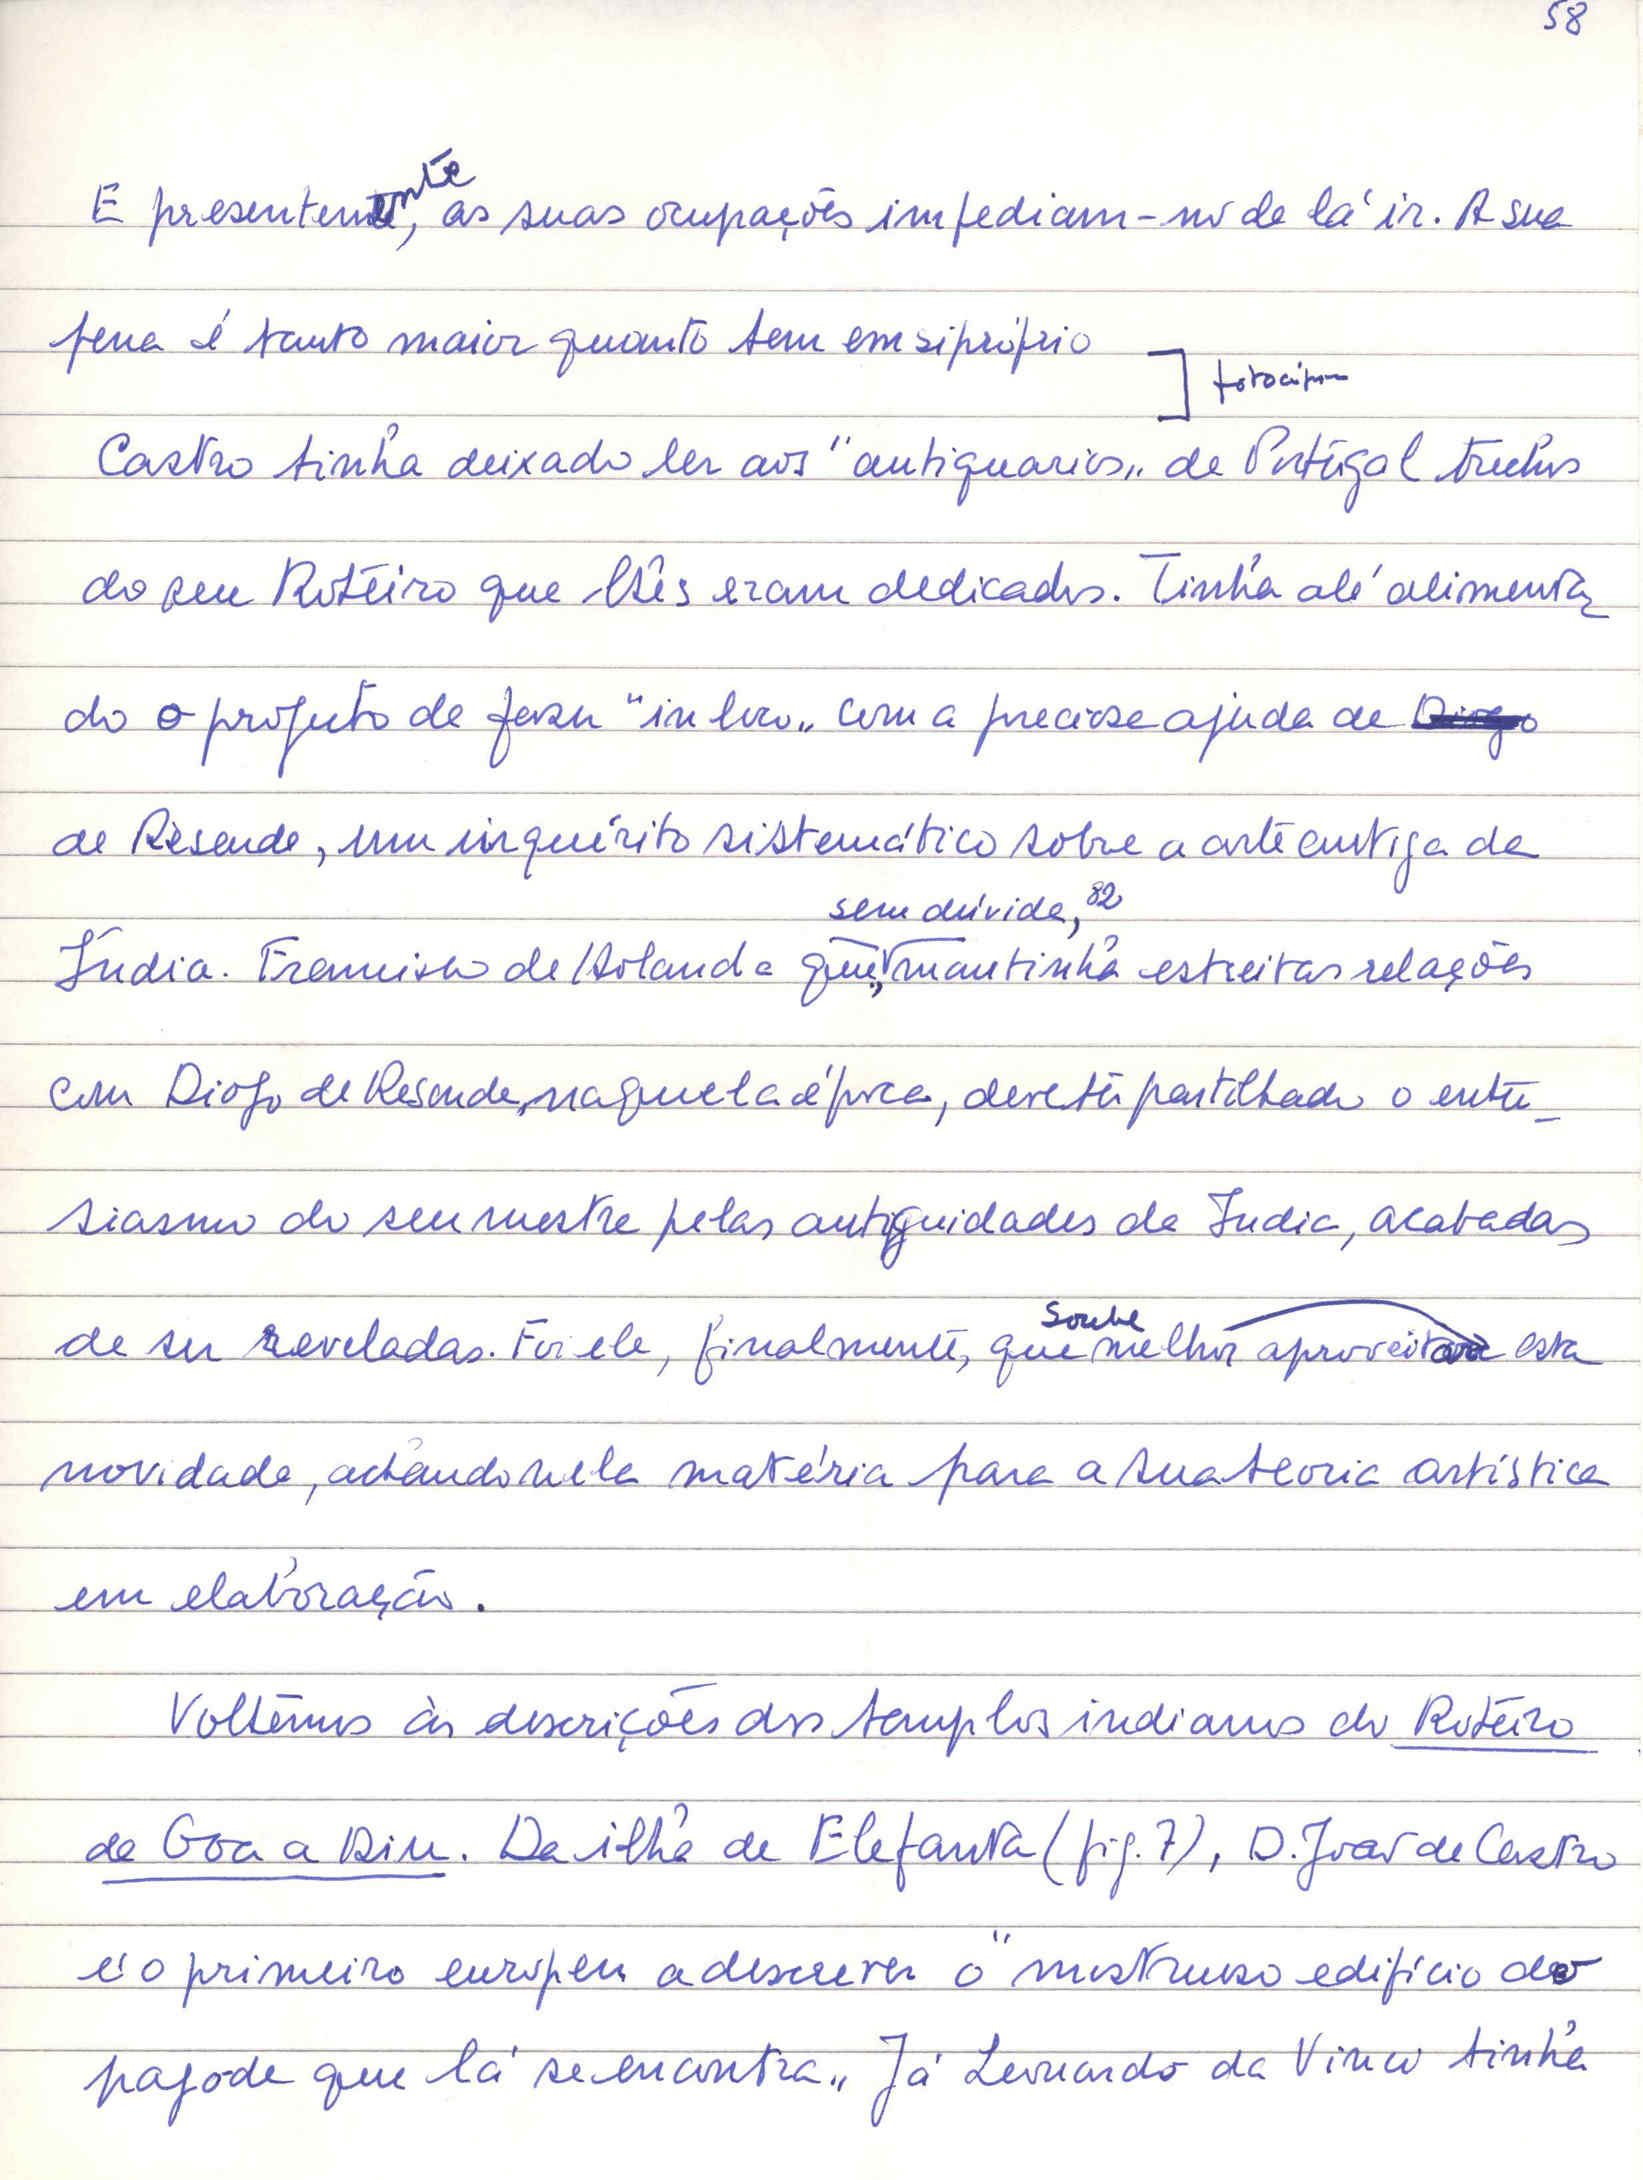 58
E presentemente, as suas ocupações impediam-no de lá ir. A sua
pena é tanto maior quanto tem em si próprio
] fotocópia
Castro tinha deixado ler aos "antiquarios" de Portugal trechos
do seu Roteiro que lhes eram dedicados. Tinha até alimenta
do o projecto de fazer "in loco" com a preciosa ajuda de Diogo
de Resende, um inquérito sistemático sobre a arte antiga da
sem dúvida, 82
Índia. Francisco de Holanda que, mantinha estreitas relações
com Diogo de Resende, naquela época, deve ter partilhado o entu-
siasmo do seu mestre pelas antiguidades da India, acabadas
soube
de ser reveladas. Foi ele, finalmente, que melhor aproveitar esta
novidade, achando nela matéria para a sua teoria artística
em elaboração.
Voltêmos às descrições dos templos indianos do Roteiro
de Goa a Diu. Da ilha de Elefanta (fig. 7), D. João de Castro
é o primeiro europeu a descrever o "mostruoso edifício do
pagode que lá se encontra" Já Leonardo da Vinci tinha